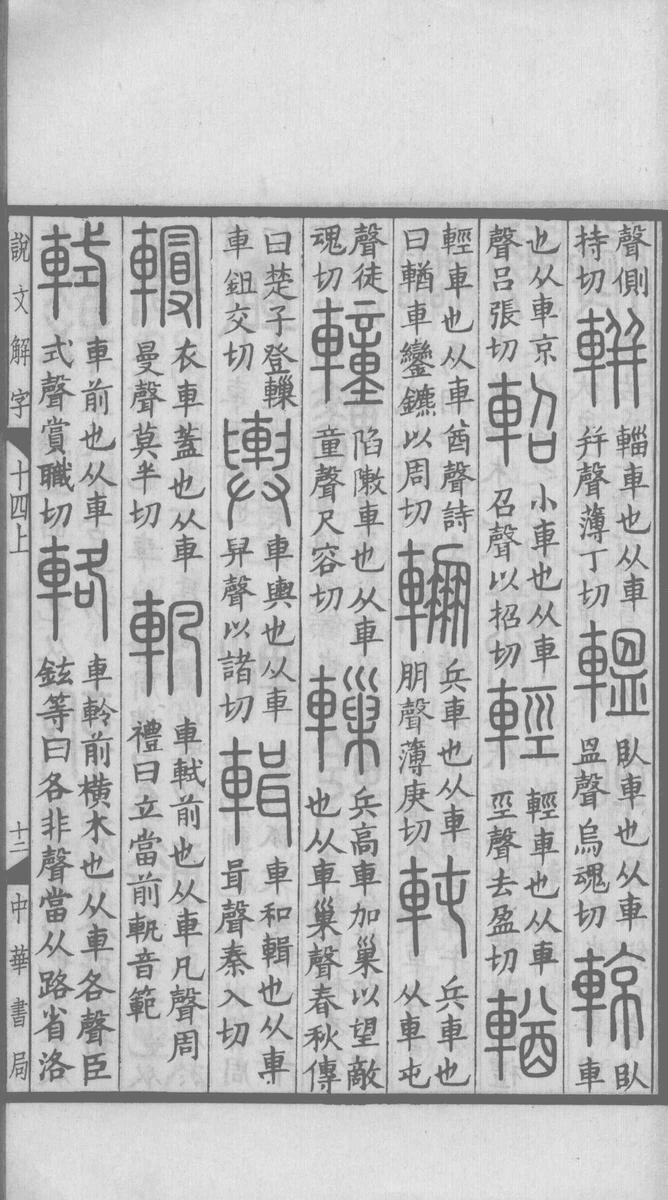 聲側持切 軿 輜車也从車幷聲薄丁切 轀 臥車也从車𥁕聲烏魂切 輬 臥車
也从車京聲呂張切 軺 小車也从車召聲以招切 輕 輕車也从車巠聲去盈切 輶
輕車也从車酋聲詩曰輶車鑾鑣以周切 輣 兵車也从車朋聲薄庚切 軘 兵車也从車屯
聲徒魂切 䡴 陷敶車也从車童聲尺容切 轈 兵高車加巢以望敵也从車巢聲春秋傳
曰楚子登轈車鉏交切 輿 車輿也从車舁聲以諸切 輯 車和輯也从車咠聲秦入切
䡬 衣車蓋也从車曼聲莫半切 軓 車軾前也从車凡聲周禮曰立當前軓音範
軾 車前也从車式聲賞職切 輅 車軨前橫木也从車各聲臣鉉等曰各非聲當从路省洛
說文解字 十四上 十二 中華書局